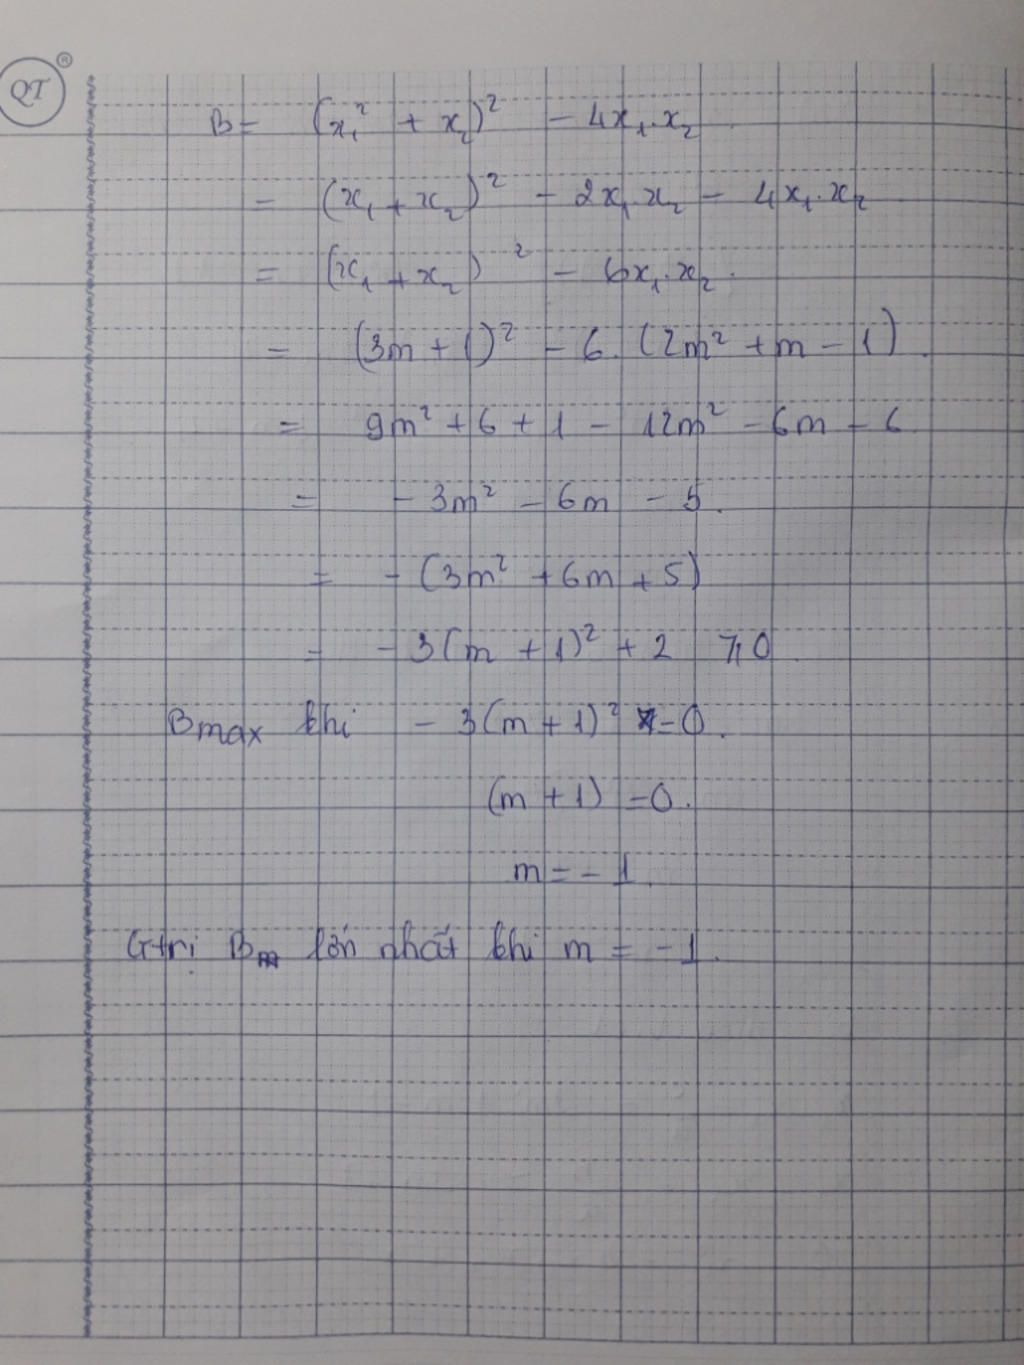 QT ®
B = (x₁² + x₂)² - 4x₁.x₂
= (x₁ + x₂)² - 2x₁.x₂ - 4x₁.x₂
= (x₁ + x₂)² - 6x₁.x₂.
= (3m + 1)² - 6. (2m² + m - 1).
= 9m² + 6 + 1 - 12m² - 6m - 6
= - 3m² - 6m - 5.
= - (3m² + 6m + 5)
= - 3(m + 1)² + 2 ⩾ 0
Bmax khi - 3(m + 1)² = 0.
(m + 1) = 0.
m = - 1.
Gtrị B lớn nhất khi m = - 1.